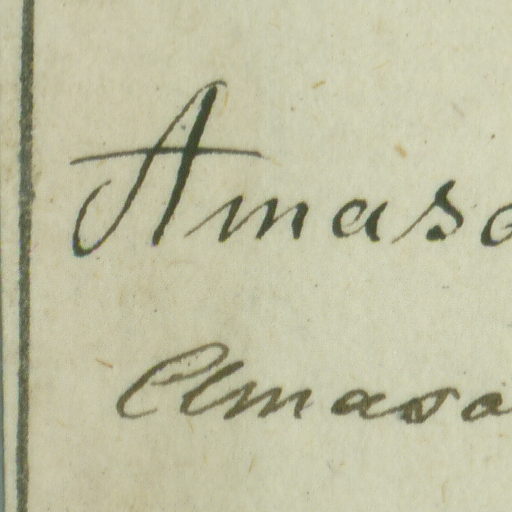 Amasa
Amasa